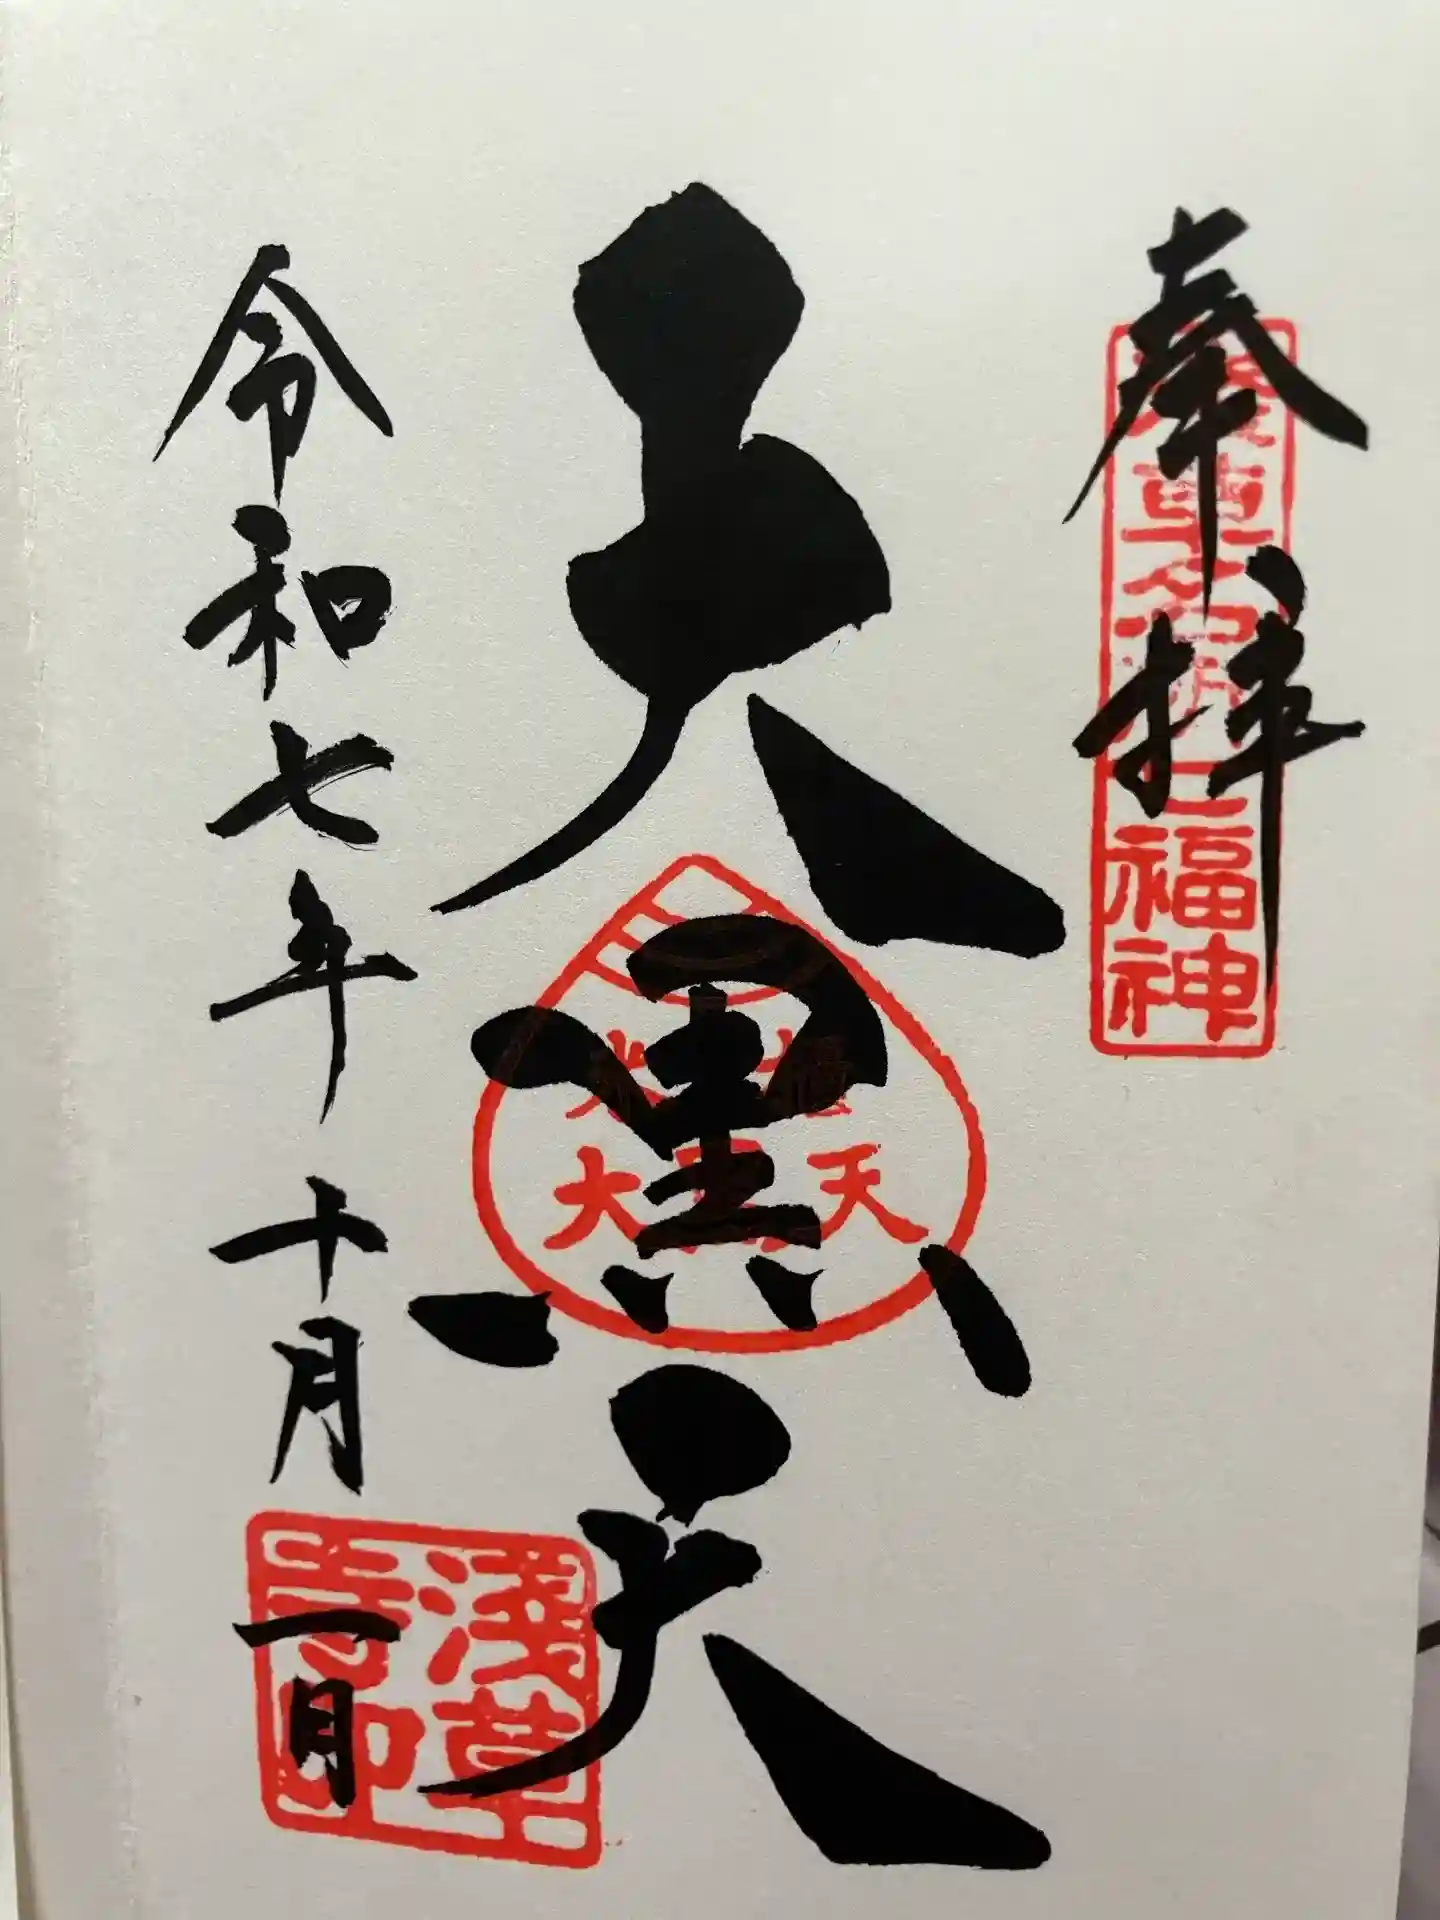 奉拝
浅草名所七福神
大黒天
大黒天
令和七年十月一日
浅草寺印